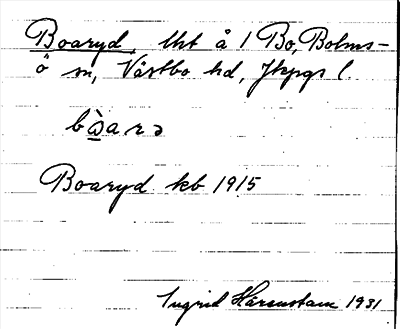 Boaryd, lht å 1 Bo, Bolms-
ö sn, Västbo hd, Jkpgs l.
bòarə
Boaryd kb 1915
Ingrid Härenstam 1931